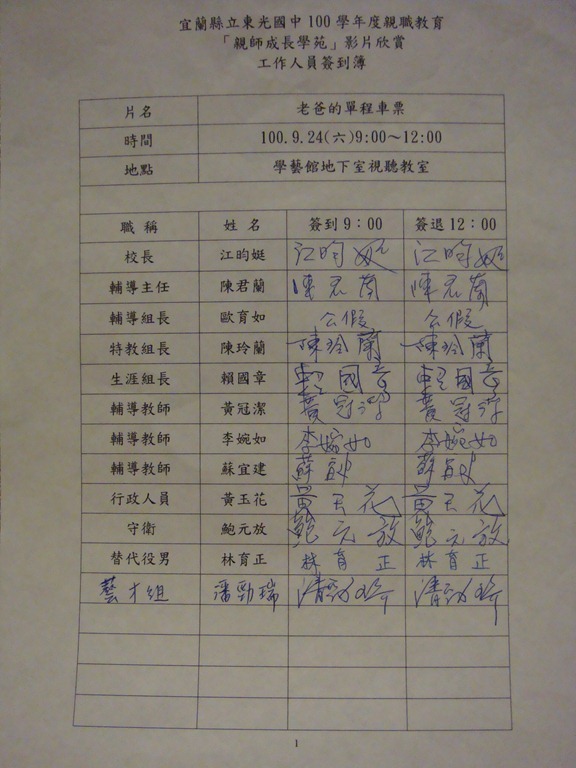 宜蘭縣立東光國中100學年度親職教育
「親師成長學苑」影片欣賞
工作人員簽到簿
片名 老爸的單程車票
時間 100.9.24(六)9:00～12:00
地點 學藝館地下室視聽教室
職稱 姓名 簽到9：00 簽退12：00
校長 江昀娗 江昀娗 江昀娗
輔導主任 陳君蘭 陳君蘭 陳君蘭
輔導組長 歐育如 公假 公假
特教組長 陳玲蘭 陳玲蘭 陳玲蘭
生涯組長 賴國章 賴國章 賴國章
輔導教師 黃冠潔 黃冠潔 黃冠潔
輔導教師 李婉如 李婉如 李婉如
輔導教師 蘇宜建 蘇宜建 蘇宜建
行政人員 黃玉花 黃玉花 黃玉花
守衛 鮑元放 鮑元放 鮑元放
替代役男 林育正 林育正 林育正
藝才組 潘勁瑞 潘勁瑞 潘勁瑞
1